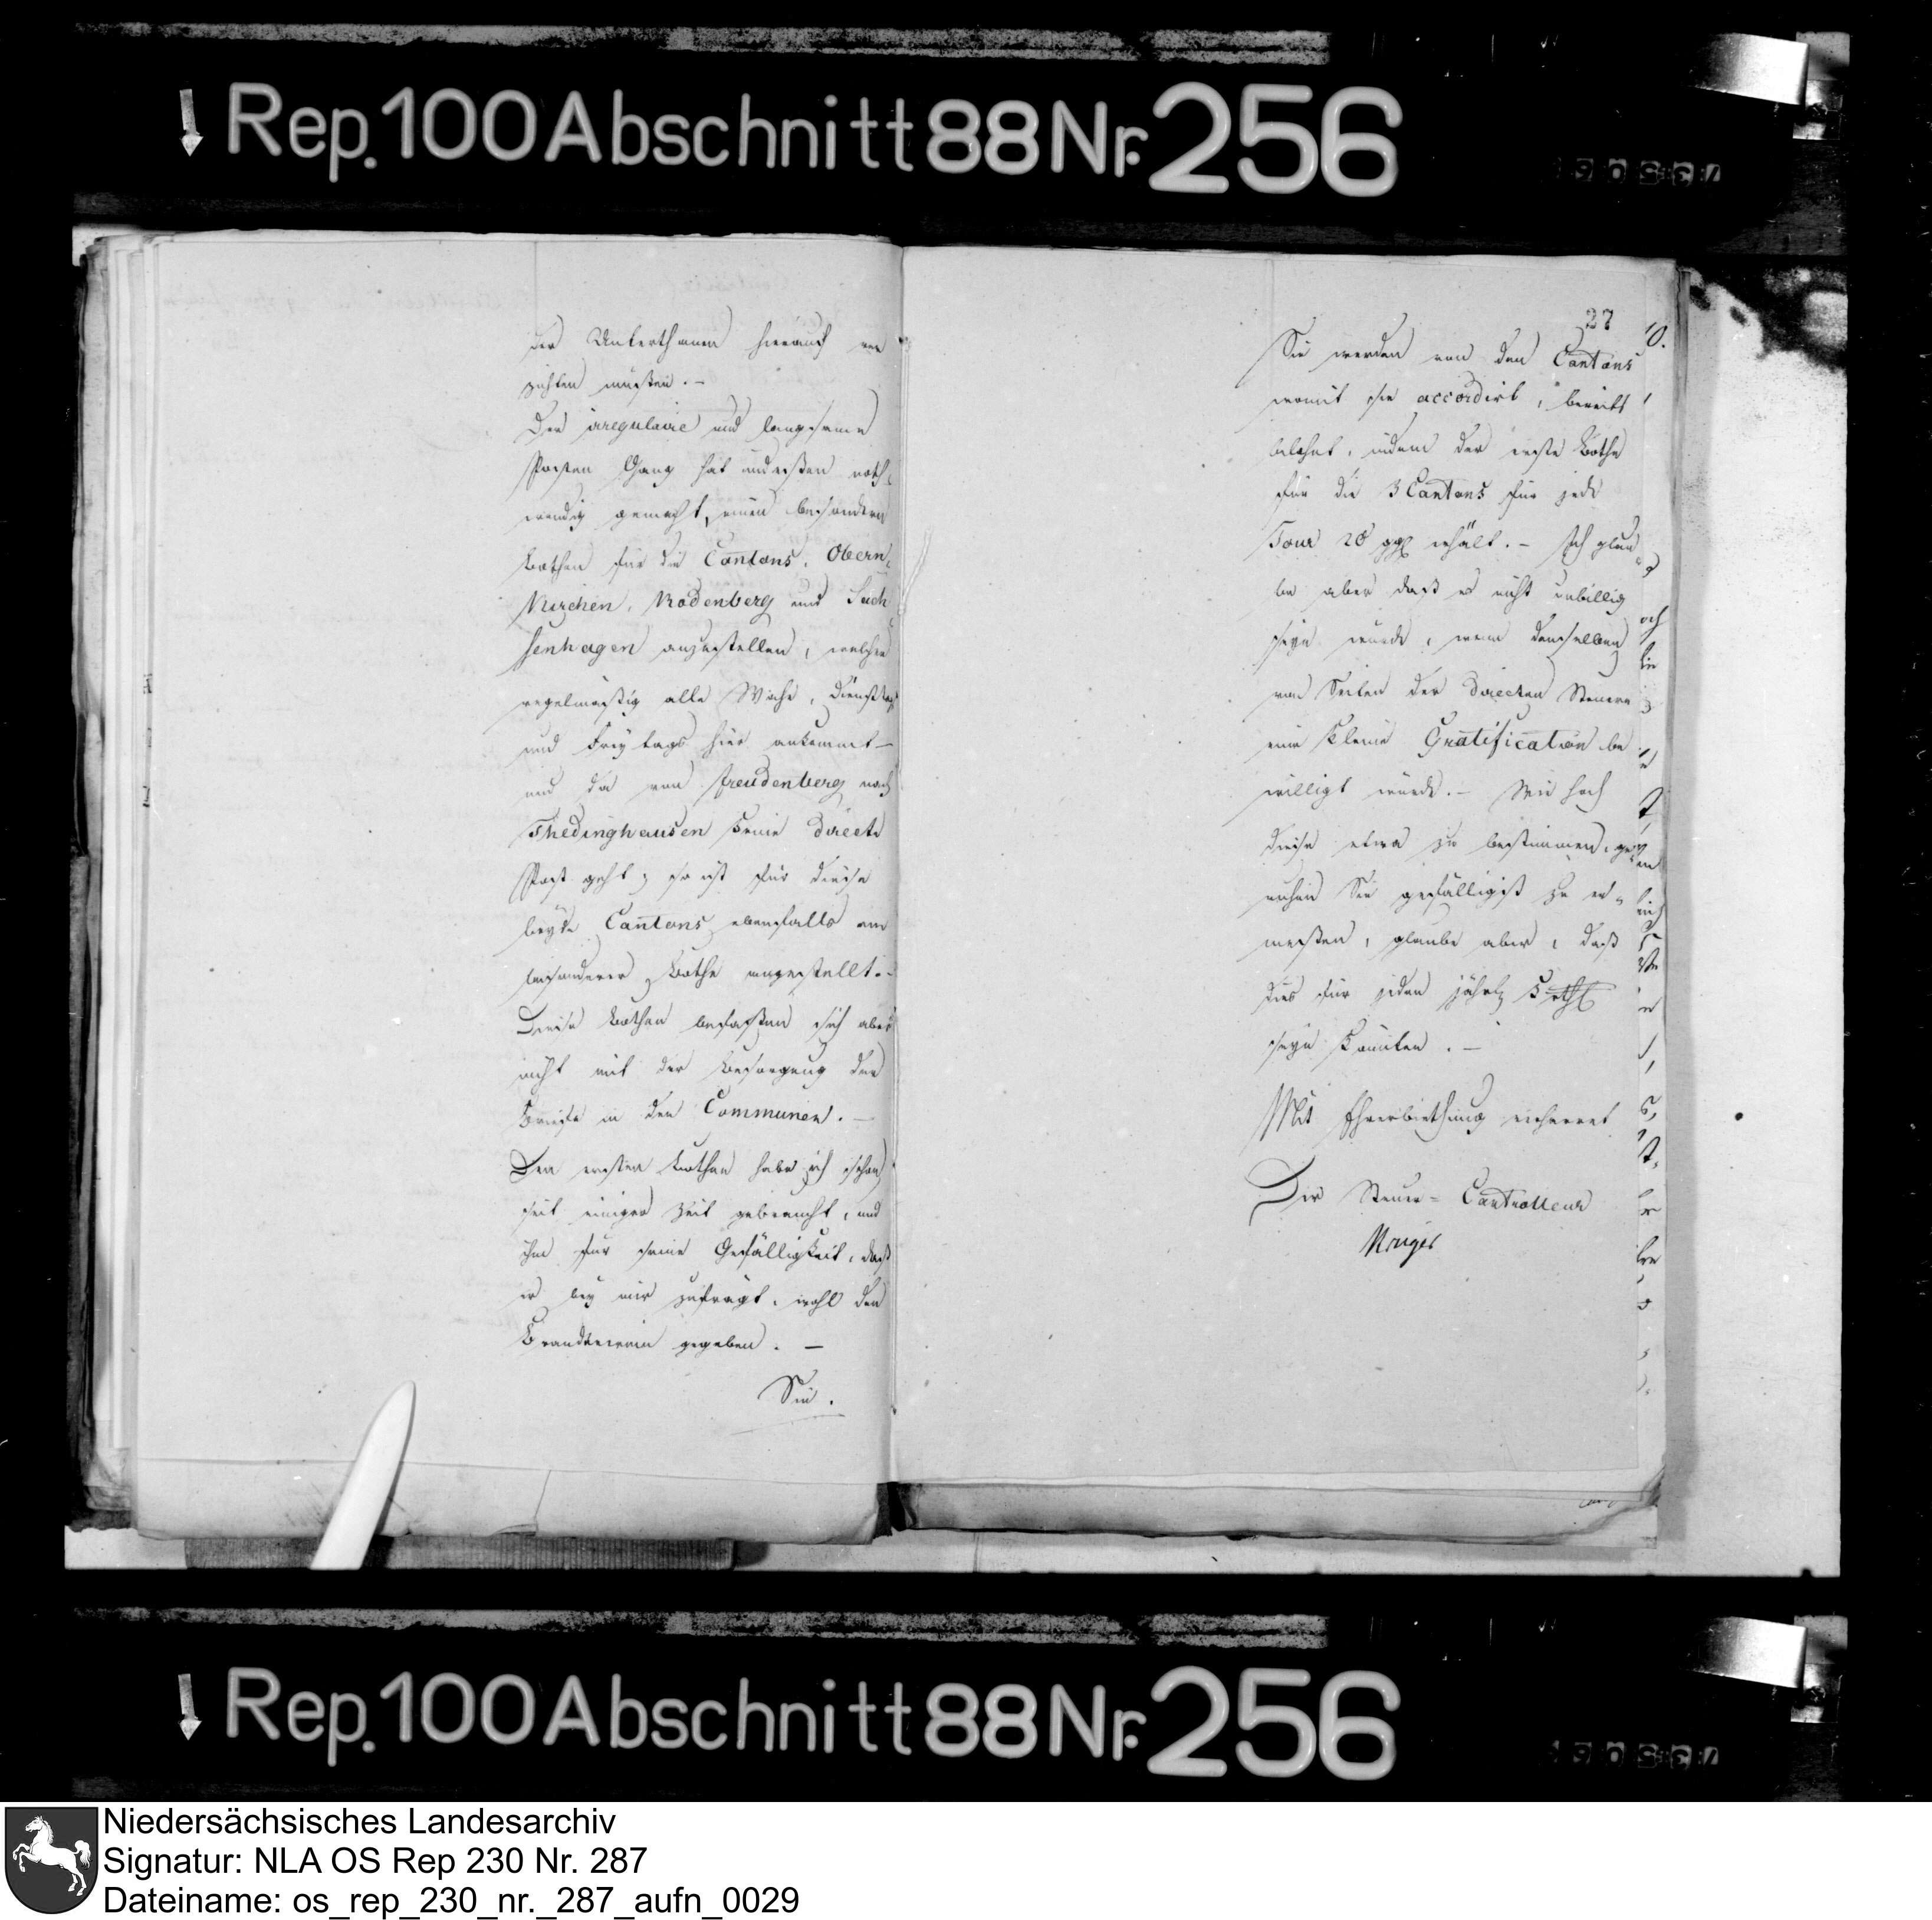 Rep. 100 Abschnitt 88 Nr. 256
der Unterthanen hierauf ver
zichten müßen. –
Der iregulaire und langsame
Posten Gang hat indeßen noth-
wendig gemacht, einen besondern
Bothen für die Cantons, Obern-
kirchen, Rodenberg und Sach
senhagen anzustellen, welcher
regelmäßig alle Woche, Dienstags
und Freytags hier ankommt –
und da von Freudenberg nach
Thedinghausen keine directe
Post geht, so ist für diese
beyde Cantons ebenfalls ein
besonderer Bothe angestellt. –
Diese Bothen befaßen sich aber
nicht mit der Besorgung der
Briefe in den Communen. –
Den ersten Bothen habe ich schon
seit einiger Zeit gebraucht, und
ihm für seine Gefälligkeit, daß
er bey mir zufrägt, wohl den
Brandtewein gegeben. –
Sie.
27
Sie werden von den Cantons
womit sie accordirt, bereits
belohnt, indem der erste Bothe
für die 3 Cantons für jede
Tour 20 ggl erhält. – Ich glau
be aber daß es nicht unbillig
seyn würde, wenn denselben
von Seiten der directen Steuern
eine kleine Gratification be
willigt würde. – Wie hoch
diese etwa zu bestimmen, ge
ruhen Sie gefälligst zu er-
meßen, glaube aber, daß
dies für jeden jährl 5 rthl
seyn könnten. –
Mit Ehrerbiethung verharret
Der Steuer-Controlleur
Rep. 100 Abschnitt 88 Nr. 256
Niedersächsisches Landesarchiv
Signatur: NLA OS Rep 230 Nr. 287
Dateiname: os_rep_230_nr._287_aufn_0029